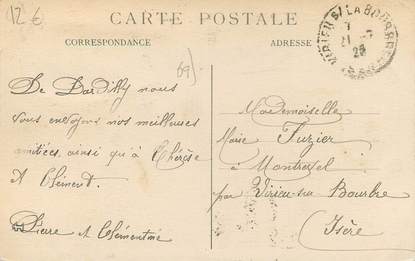 12 €
CARTE POSTALE
CORRESPONDANCE
ADRESSE
VIRIEU S/ LA BOURBRE
21 - 7
23
ISÈRE
69)
De Dardilly nous
vous envoyons nos meilleures
amitiées, ainsi qu'à Thérèse
et Clément.
Pierre et Clémentine
Mademoiselle
Marie Fuzier
à Montrevel
par Virieu-sur Bourbre
Isère